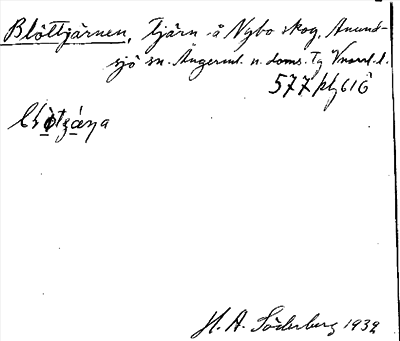 Blöttjärnen, tjärn å Nybo skog, Anund-
sjö sn. Ångerml. n. doms. Tg Vnorrl. l.
577 
H. A. Söderberg 1932